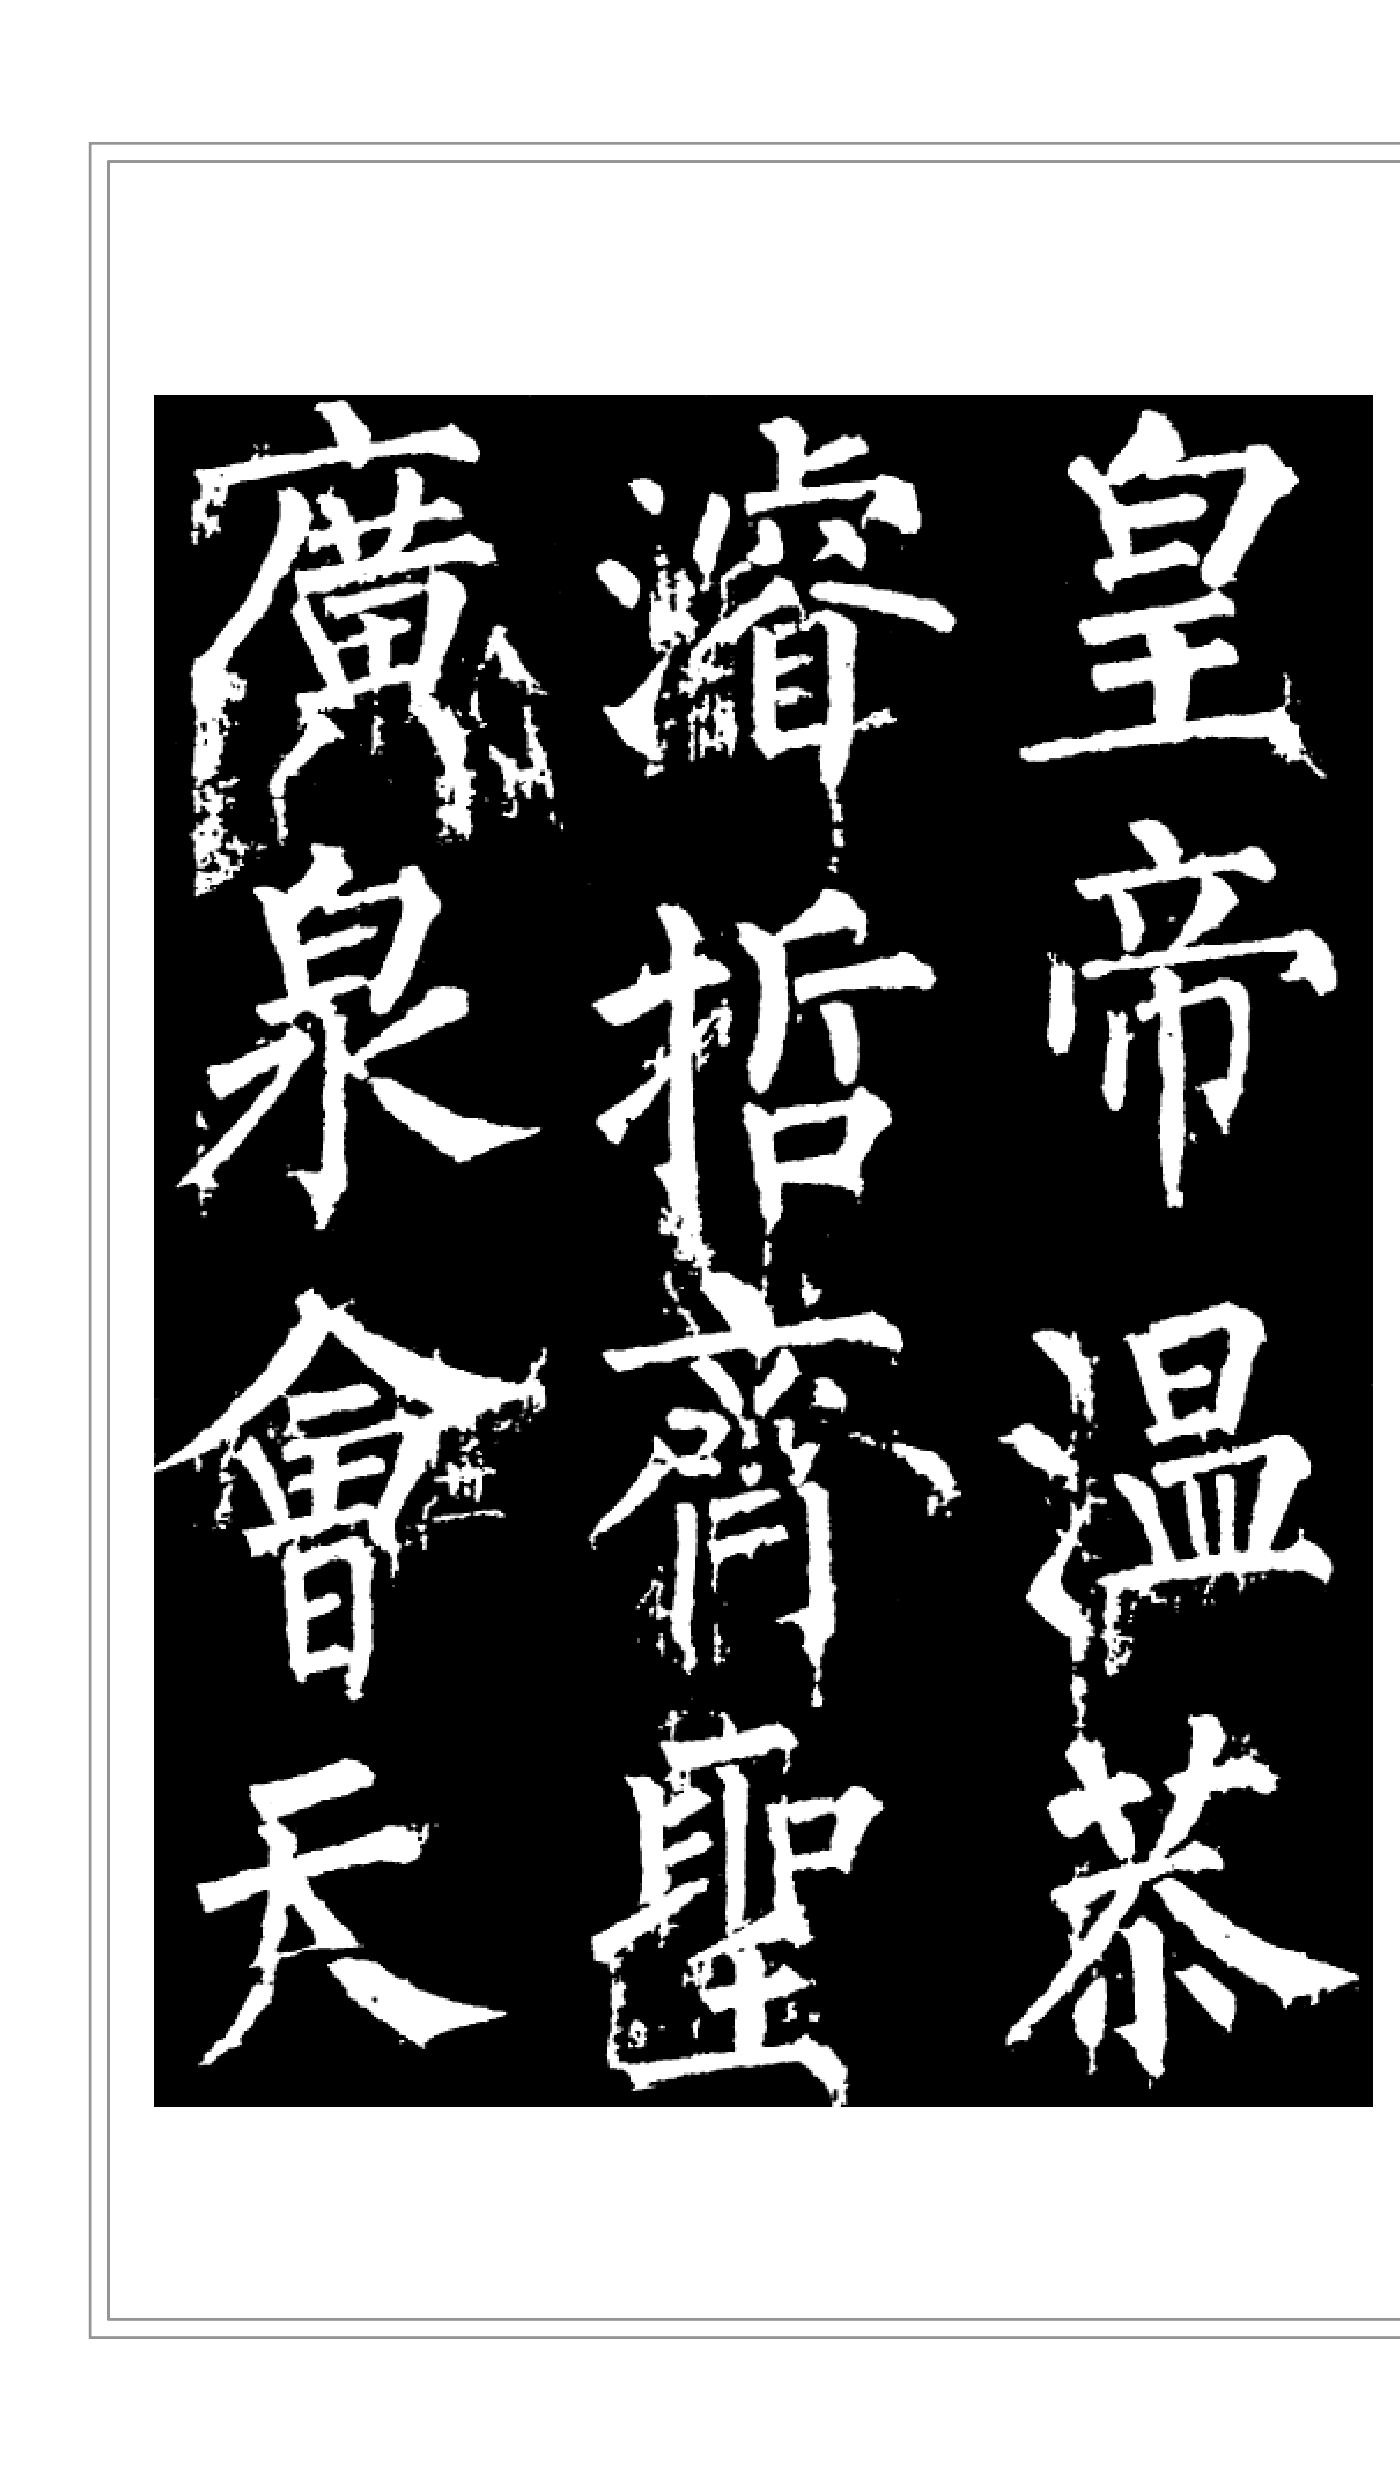 皇帝温恭
濬哲齊聖
廣泉會天